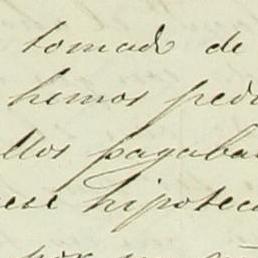 tomado de
hemos pedi
ellos pagaba
ese hipoteca